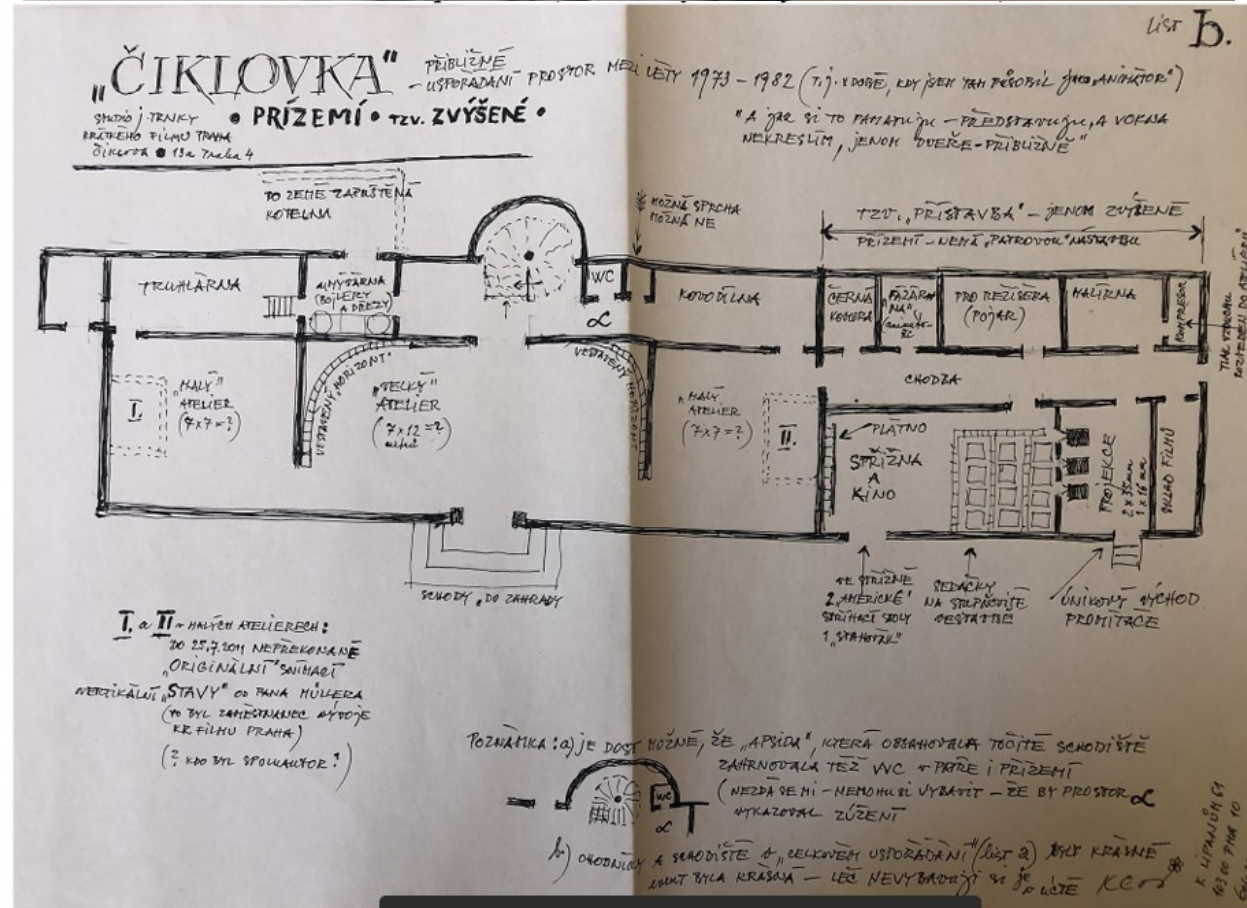 LIST b.
„ČIKLOVKA“
PŘIBLIŽNÉ
- USPOŘÁDÁNÍ PROSTOR MEZI LÉTY 1973 - 1982 (T.J. V DOBĚ, KDY JSEM TAM PŮSOBIL JAKO „ANIMÁTOR“)
STUDIO J. TRNKY
KRÁTKÉHO FILMU PRAHA
ČIKLOVA 13a Praha 4
• PŘÍZEMÍ • TZV. ZVÝŠENÉ •
"A JAK SI TO PAMATUJU - PŘEDSTAVUJU, A VOKNA
NEKRESLÍM, JENOM "DVEŘE-PŘIBLIŽNĚ"
DO ZEMĚ ZAPUŠTĚNÁ
KOTELNA
MOŽNÁ SPRCHA
MOŽNÁ NE
TZV. „PŘÍSTAVBA“ - JENOM ZVÝŠENÉ
PŘÍZEMÍ - NEMÁ „PATROVOU“ NÁSTAVBU
TRUHLÁRNA
UMÝVÁRNA
(BOJLERY
A DŘEZY)
WC
α
KOVODÍLNA
ČERNÁ
KOMORA
„FÁZÁR
NA“
PRO REŽISÉRA
(POJAR)
MALÍRNA
KOMPRESOR
TLAK VZDUCHU
ROZVEDEN DO ATELIÉRŮ
CHODBA
„MALÝ“
ATELIER
(7x7=?)
I.
VESTAVĚNÝ „HORIZONT“
„VELKÝ“
ATELIER
(7x12=?)
metrů
VESTAVĚNÝ HORIZONT
„MALÝ
ATELIER
(7x7=?)
II.
PLÁTNO
STŘIŽNA
A
KINO
PROJEKCE
2 x 35mm
1 x 16 mm
SKLAD FILMŮ
SCHODY „DO ZAHRADY
VE STŘIŽNĚ
2 „AMERICKÉ“
STŘÍHACÍ STOLY
1 „STAHOVÁK“
SEDAČKY
NA STUPŇOVITÉ
VESTAVBĚ
ÚNIKOVÝ VÝCHOD
PROMÍTAČE
I. a II v MALÝCH ATELIERECH:
DO 25.7.2011 NEPŘEKONANÉ
„ORIGINÁLNÍ“ SNÍMACÍ
VERTIKÁLNÍ „STAVY“ OD PANA MÜLLERA
(TO BYL ZAMĚSTNANEC VÝVOJE
KR. FILMU PRAHA)
(? KDO BYL SPOLUAUTOR?)
POZNÁMKA: a) JE DOST MOŽNÉ, ŽE „APSIDA“, KTERÁ OBSAHOVALA TOČITÉ SCHODIŠTĚ
ZAHRNOVALA TÉŽ WC V PATŘE I PŘÍZEMÍ
(NEZDÁ SE MI - NEMOHU SI VYBAVIT - ŽE BY PROSTOR α
VYKAZOVAL ZÚŽENÍ
WC
α
b) CHODNÍČKY A SCHODIŠTĚ V „CELKOVÉM USPOŘÁDÁNÍ“ (list a) BYLY KRÁSNÉ
BYLA KRÁSNÁ - LEČ NEVYBAVUJI SI JE
K LIPANŮM 61
103 00 PHA 10